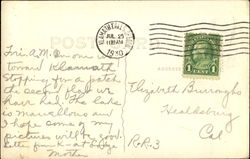 POST CARD
JUL 25
1930
1 CENT 1
Fri. A.M. On our way
toward Klamath
stopping for a patch
the second flat we
have had. The lake
is marvellous and
I hope some of my
pictures will be good.
Letter from K - at lodge
Mother
Elizabeth Burroughs
Healdsburg
Cal
R.R.3